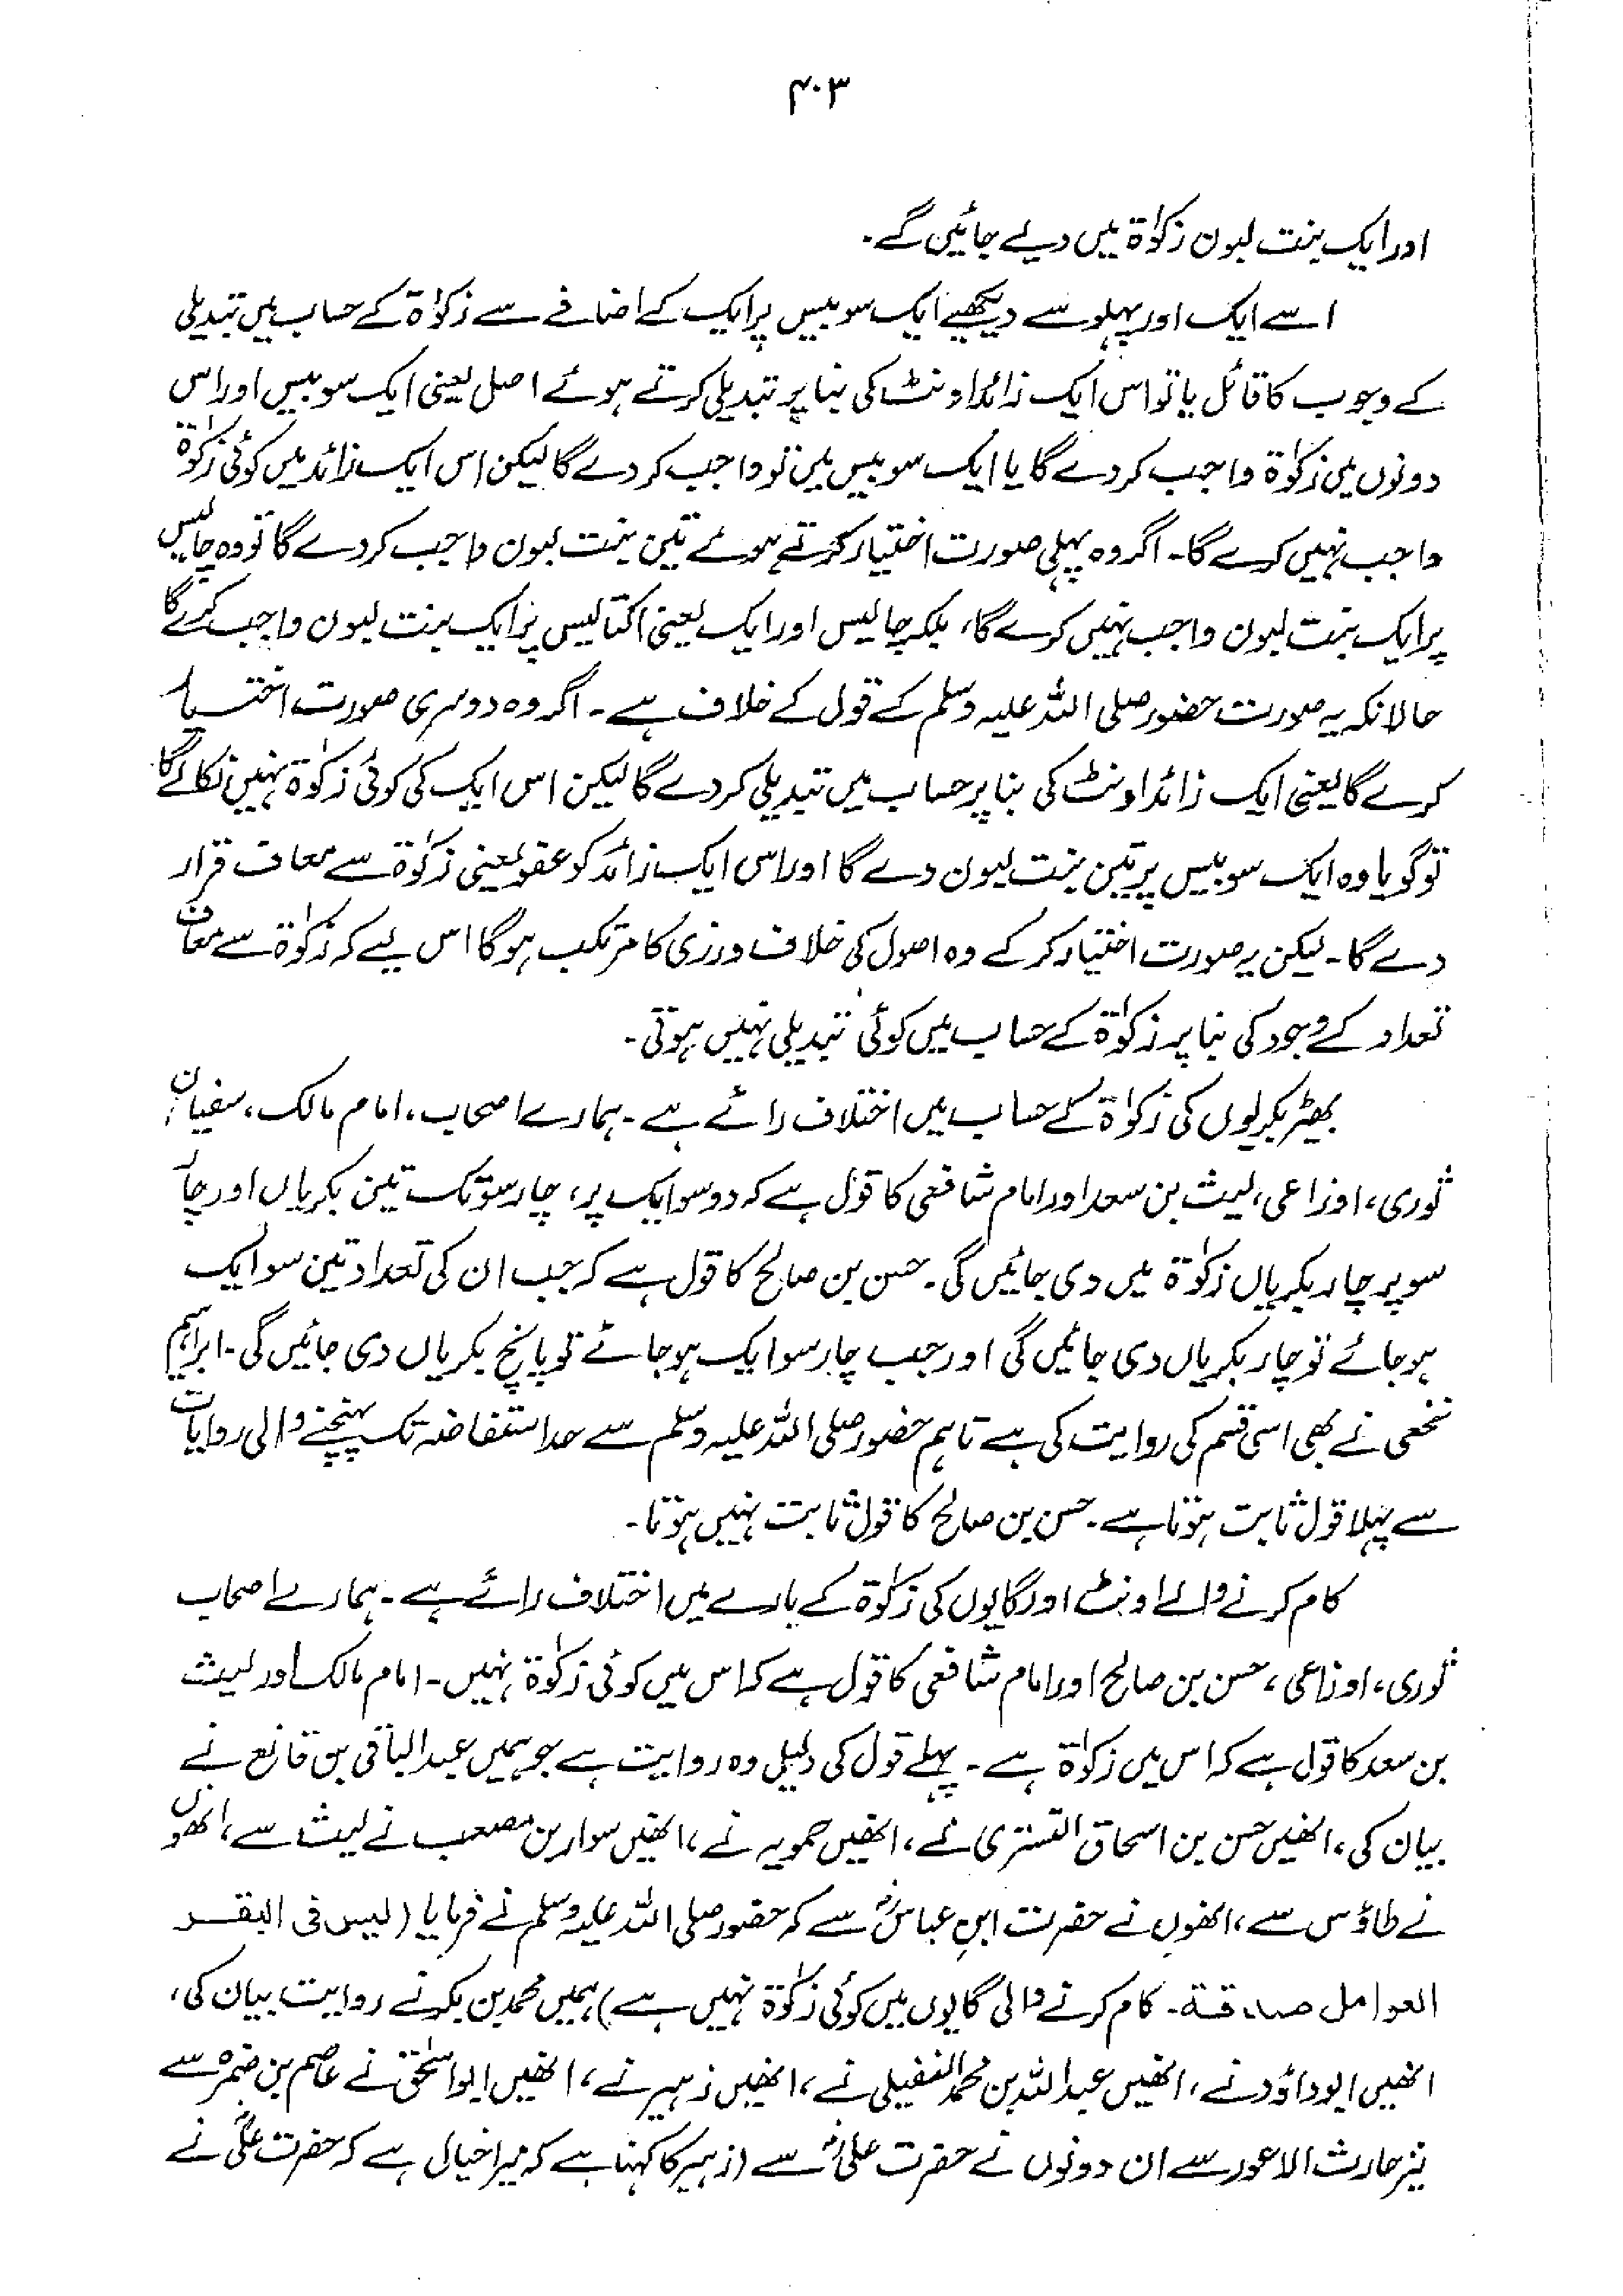 ۴۰۳
اور ایک بنت لبون زکوٰۃ میں دیے جائیں گے۔
اسے ایک اور پہلو سے دیکھیے ایک سو بیس پر ایک کے اضافے سے زکوٰۃ کے حساب میں تبدیلی
کے وجوب کا قائل یا تو اس ایک زائد اونٹ کی بنا پر تبدیلی کرتے ہوئے اصل یعنی ایک سو بیس اور اس
دونوں میں زکوٰۃ واجب کر دے گا یا ایک سو بیس میں تو واجب کر دے گا لیکن اس ایک زائد میں کوئی زکوٰۃ
واجب نہیں کرے گا۔ اگر وہ پہلی صورت اختیار کرتے ہوئے تین بنت لبون واجب کر دے گا تو وہ چالیس
پر ایک بنت لبون واجب نہیں کرے گا، بلکہ چالیس اور ایک یعنی اکتالیس پر ایک بنت لبون واجب کرے گا
حالانکہ یہ صورت حضور صلی اللہ علیہ وسلم کے قول کے خلاف ہے۔ اگر وہ دوسری صورت اختیار
کرے گا یعنی ایک زائد اونٹ کی بنا پر حساب میں تبدیلی کر دے گا لیکن اس ایک کی کوئی زکوٰۃ نہیں نکالے گا
تو گویا وہ ایک سو بیس پر تین بنت لبون دے گا اور اس ایک زائد کو عفو یعنی زکوٰۃ سے معاف قرار
دے گا۔ لیکن یہ صورت اختیار کر کے وہ اصول کی خلاف ورزی کا مرتکب ہوگا اس لیے کہ زکوٰۃ سے معاف
تعداد کے وجود کی بنا پر زکوٰۃ کے حساب میں کوئی تبدیلی نہیں ہوتی۔
بھیڑ بکریوں کی زکوٰۃ کے حساب میں اختلاف رائے ہے۔ ہمارے اصحاب، امام مالک، سفیان
ثوری، اوزاعی، لیث بن سعد اور امام شافعی کا قول ہے کہ دو سو ایک پر، چار سو تک تین بکریاں اور چار
سو پر چار بکریاں زکوٰۃ میں دی جائیں گی۔ حسن بن صالح کا قول ہے کہ جب ان کی تعداد تین سو ایک
ہو جائے تو چار بکریاں دی جائیں گی اور جب چار سو ایک ہو جائے تو پانچ بکریاں دی جائیں گی۔ ابراہیم
نخعی نے بھی اسی قسم کی روایت کی ہے تاہم حضور صلی اللہ علیہ وسلم سے حد استفاضہ تک پہنچنے والی روایات
سے پہلا قول ثابت ہوتا ہے۔ حسن بن صالح کا قول ثابت نہیں ہوتا۔
کام کرنے والے اونٹ اور گایوں کی زکوٰۃ کے بارے میں اختلاف رائے ہے۔ ہمارے اصحاب
ثوری، اوزاعی، حسن بن صالح اور امام شافعی کا قول ہے کہ اس میں کوئی زکوٰۃ نہیں۔ امام مالک اور لیث
بن سعد کا قول ہے کہ اس میں زکوٰۃ ہے۔ پہلے قول کی دلیل وہ روایت ہے جو ہمیں عبدالباقی بن قانع نے
بیان کی، انھیں حسن بن اسحاق التستری نے، انھیں حمویہ نے، انھیں سوار بن مصعب نے لیث سے، انھوں
نے طاؤس سے، انھوں نے حضرت ابن عباسؓ سے کہ حضور صلی اللہ علیہ وسلم نے فرمایا (لیس فی البقر
العوامل صدقة۔ کام کرنے والی گایوں میں کوئی زکوٰۃ نہیں ہے) ہمیں محمد بن بکر نے روایت بیان کی،
انھیں ابوداؤد نے، انھیں عبداللہ بن محمد النفیلی نے، انھیں زہیر نے، انھیں ابواسحٰق نے عاصم بن ضمرہ سے
نیز حارث الاعور سے ان دونوں نے حضرت علیؓ سے (زہیر کا کہنا ہے کہ میرا خیال ہے کہ حضرت علیؓ نے